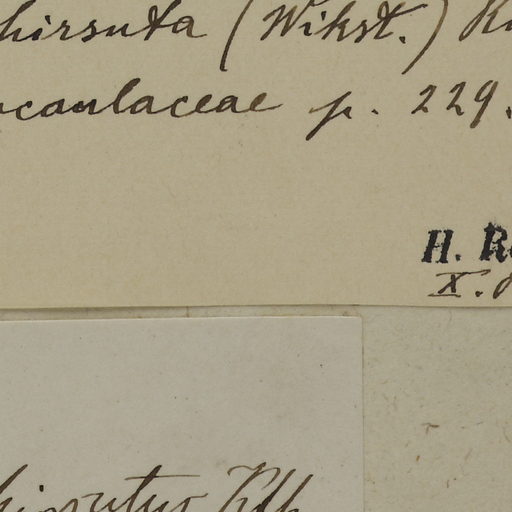 hirsuta (Wikst.) K
ocaulaceae p. 229.
H. R
X.
hirsutus Kth